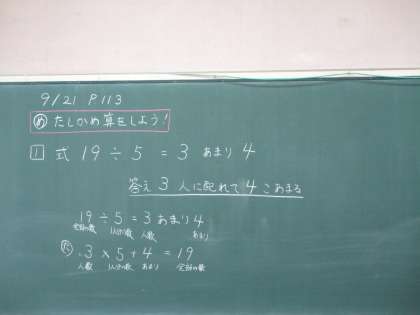 9/21 P113
め たしかめ算をしよう!
1 式 19÷5=3 あまり 4
答え 3人に配れて4こあまる
19÷5=3あまり4
全部の数 1人分の数 人数 あまり
た 3×5+4=19
人数 1人分の数 あまり 全部の数